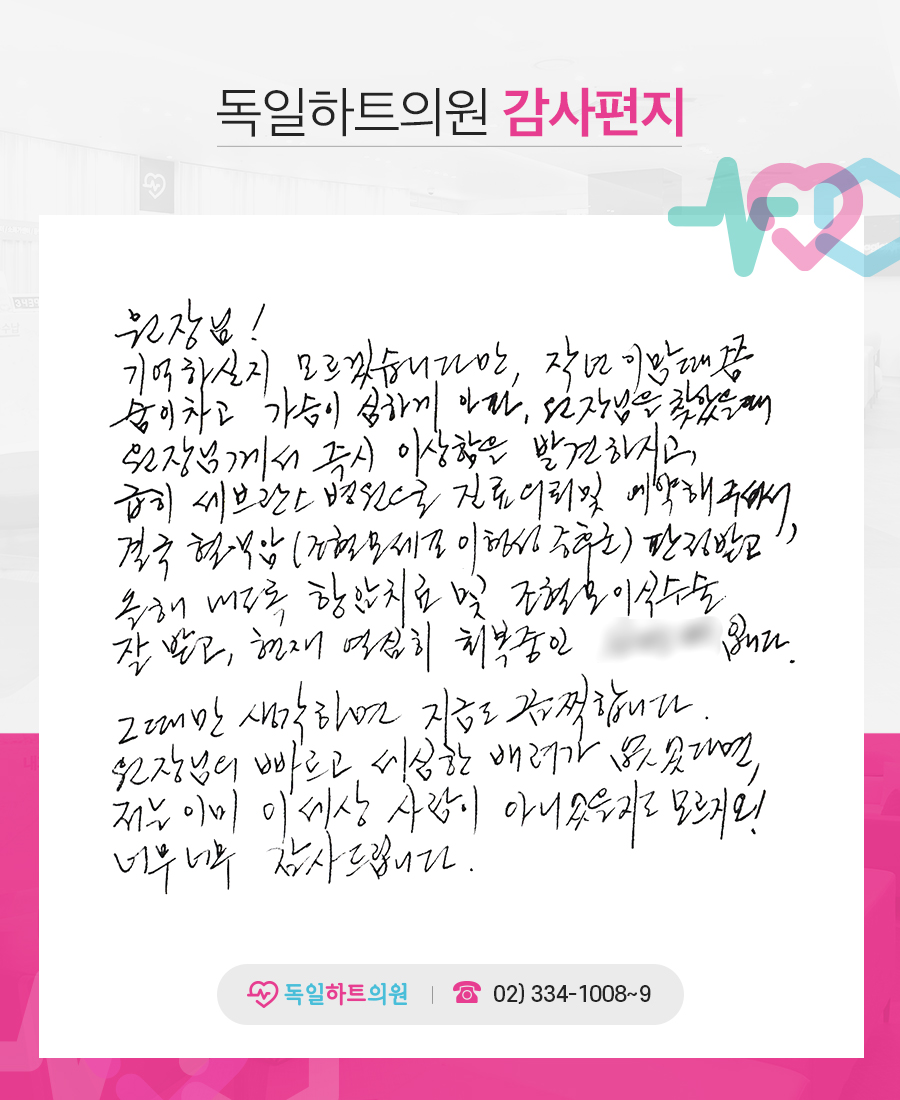 독일하트의원 감사편지
원장님!
기억하실지 모르겠습니다만, 작년 이맘때쯤
숨이차고 가슴이 심하게 아파, 원장님을 찾았을때
원장님께서 즉시 이상함을 발견하시고,
급히 세브란스 병원으로 진료의뢰및 예약해 주셔서,
결국 혈액암 (조혈모세포 이형성 증후군) 판정받고
올해 내도록 항암치료 및 조혈모이식수술
잘 받고, 현재 열심히 회복중인 입니다.
그때만 생각하면 지금도 끔찍합니다.
원장님의 빠르고 세심한 배려가 없었다면,
저는 이미 이 세상 사람이 아니었을지도 모르지요!
너무너무 감사드립니다.
독일하트의원 02) 334-1008~9